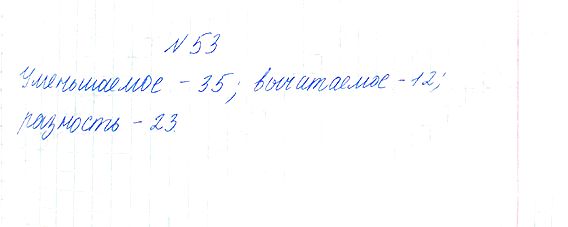 №53
Уменьшаемое - 35; вычитаемое - 12;
разность - 23